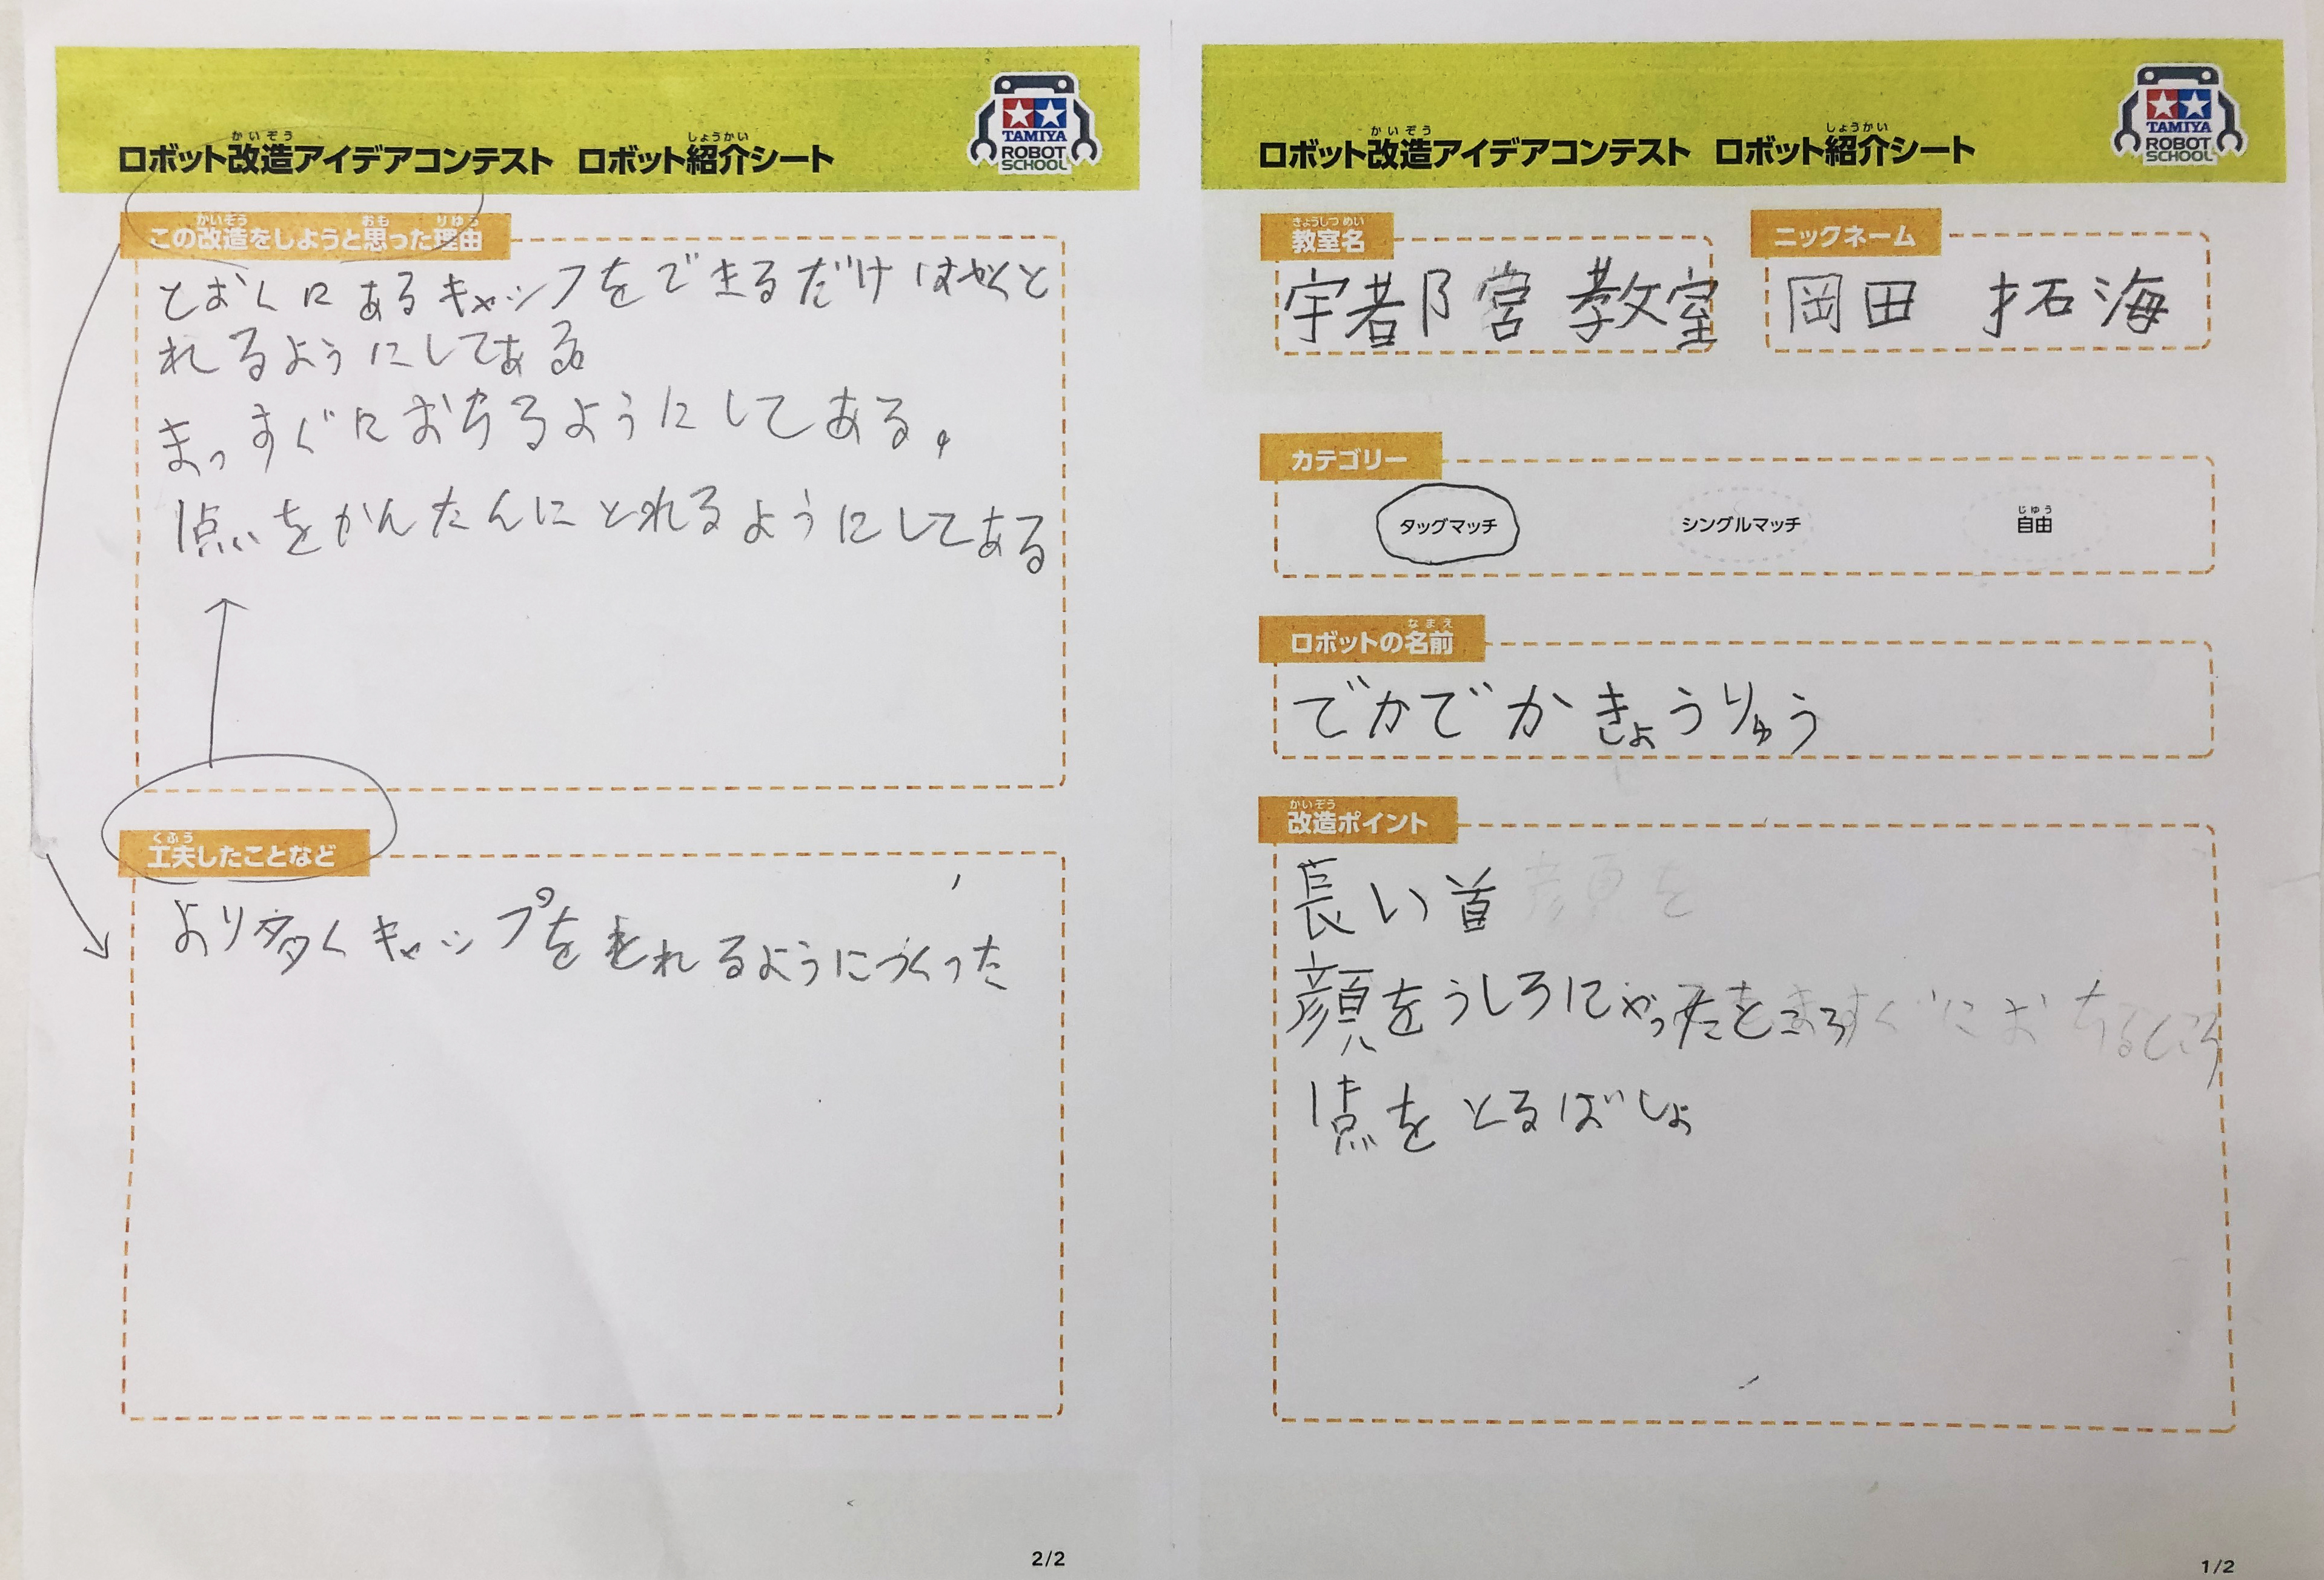 ロボット改造アイデアコンテスト ロボット紹介シート
かいぞう
しょうかい
TAMIYA
ROBOT
SCHOOL
教室名
きょうしつ めい
宇都宮 教室
ニックネーム
岡田 拓海
カテゴリー
タッグマッチ
シングルマッチ
自由
じゆう
ロボットの名前
なまえ
でかでかきょうりゅう
改造ポイント
かいぞう
長い首
顔をうしろにやったところ
1点をとるばしょ
1/2
ロボット改造アイデアコンテスト ロボット紹介シート
かいぞう
しょうかい
TAMIYA
ROBOT
SCHOOL
この改造をしようと思った理由
かいぞう
おも
りゆう
とおくにあるキャップをできるだけはやくと
れるようにしてある。
まっすぐにおちるようにしてある。
1点をかんたんにとれるようにしてある
工夫したことなど
くふう
より多くキャップをとれるようにつくった
2/2